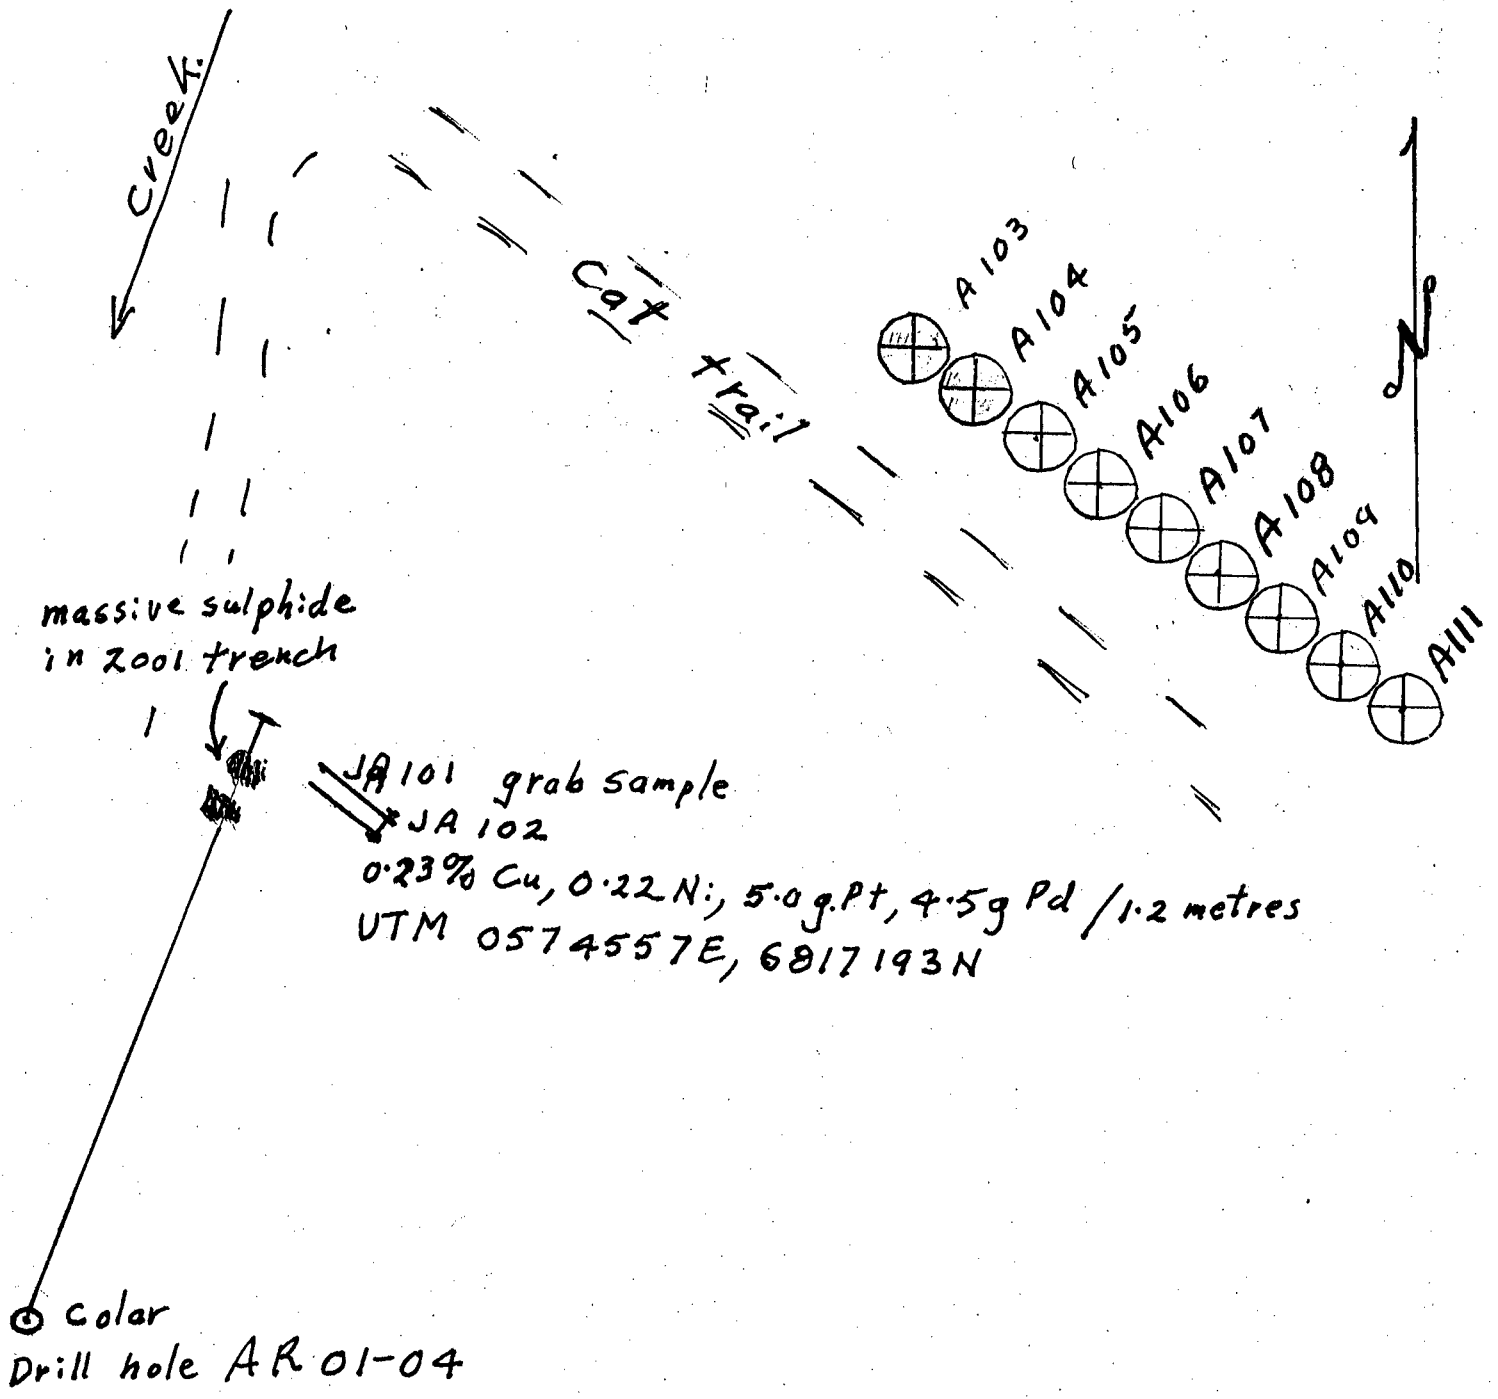 Creek.
Cat trail
A103
A104
A105
A106
A107
A108
A109
A110
A111
N
massive sulphide
in 2001 trench
JA101 grab sample
JA 102
0.23% Cu, 0.22 Ni, 5.0 g.Pt, 4.5g Pd /1.2 metres
UTM 0574557E, 6817193N
Colar
Drill hole AR 01-04